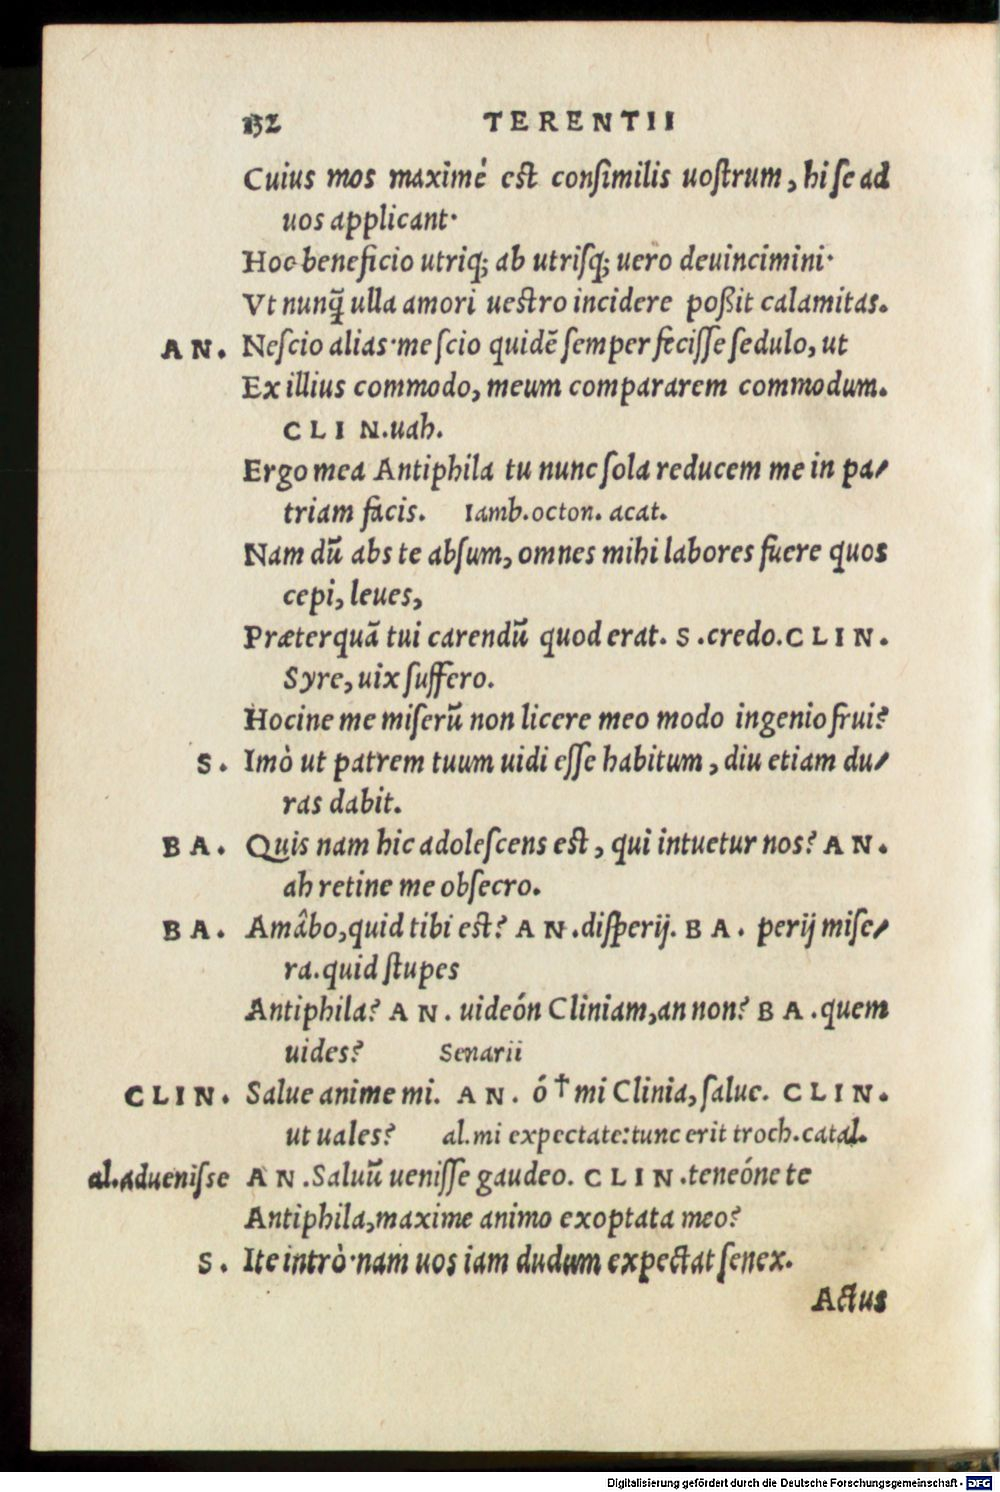 132 TERENTII
Cuius mos maximè est consimilis uostrum, hi se ad
uos applicant·
Hoc beneficio utriq; ab utrisq; uero deuincimini·
Vt nunq̃ ulla amori uestro incidere poßit calamitas.
AN. Nescio alias·me scio quidẽ semper fecisse sedulo, ut
Ex illius commodo, meum compararem commodum.
CLIN.uah.
Ergo mea Antiphila tu nunc sola reducem me in pa/
triam facis. Iamb.octon. acat.
Nam dũ abs te absum, omnes mihi labores fuere quos
cepi, leues,
Præterquã tui carendũ quod erat. S.credo.CLIN.
Syre, uix suffero.
Hocine me miserũ non licere meo modo ingenio frui?
S. Imò ut patrem tuum uidi esse habitum, diu etiam du/
ras dabit.
BA. Quis nam hic adolescens est, qui intuetur nos? AN.
ah retine me obsecro.
BA. Amâbo,quid tibi est? AN.disperij. BA. perij mise/
ra.quid stupes
Antiphila? AN. uideón Cliniam,an non? BA.quem
uides? Senarii
CLIN. Salue anime mi. AN. ó † mi Clinia, salue. CLIN.
ut uales? al.mi expectate:tunc erit troch.catal.
al.aduenisse AN.Saluũ uenisse gaudeo. CLIN.teneóne te
Antiphila,maxime animo exoptata meo?
S. Ite intrò·nam uos iam dudum expectat senex.
Actus
Digitalisierung gefördert durch die Deutsche Forschungsgemeinschaft - DFG